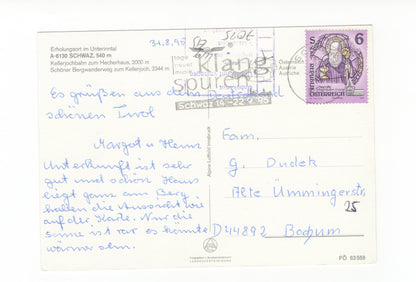 Erholungsort im Unterinntal
A-6130 SCHWAZ, 540 m
Kellerjochbahn zum Hecherhaus, 2000 m
Schöner Bergwanderweg zum Kellerjoch, 2344 m
31.8.95
klang
spuren
Schwaz 14.-22.9.95
Österreich
Austria
Autriche
S 6
REPUBLIK
ÖSTERREICH
Es grüßen aus dem
schönen Tirol
Margot u Heinz
Unterkunft ist sehr
gut und schön Haus
liegt ganz am Berg
haben die Aussicht wie
auf der Karte. Nur die
Sonne ist rar es könnte
wärmer sein.
Fam.
G. Dudek
Alte Ümmingerstr.
25
D 44892 Bochum
Alpine Luftbild Innsbruck
PÖ 63559